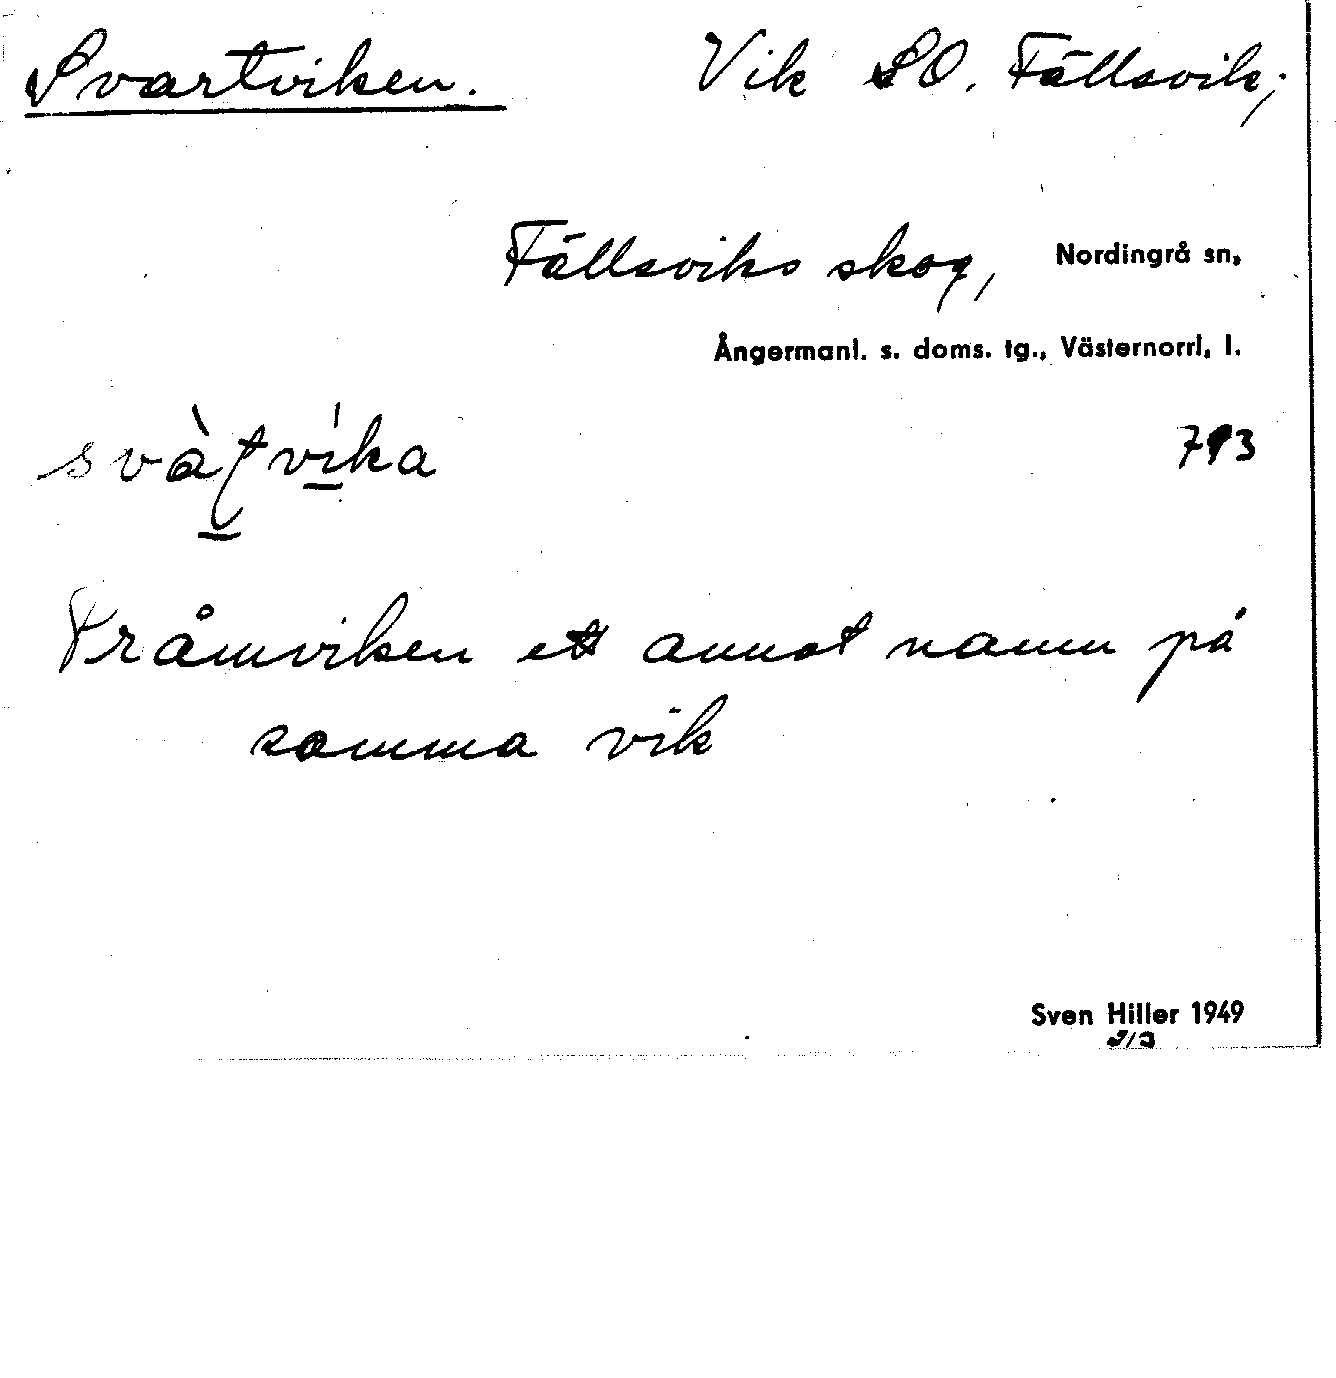 Svartviken. Vik SO. Fällsvik;
Fällsviks skog, Nordingrå sn,
Ångermanl. s. doms. tg., Västernorrl. l.
svàṭvíka 793
Pråmviken ett annat namn på
samma vik
Sven Hiller 1949